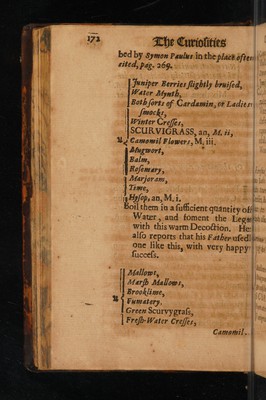 172
The Curiosities
bed by Symon Paulus in the place often
cited, pag. 269.
Juniper Berries slightly bruised,
Water Mynth,
Both sorts of Cardamin, or Ladies
smocks,
Winter Cresses,
SCURVIGRASS, an, M. ii,
℞ Camomil Flowers, M, iii.
Mugwort,
Balm,
Rosemary,
Marjoram,
Time,
Hysop, an, M. i.
Boil them in a sufficient quantity of
Water, and foment the Legs
with this warm Decoction. He
also reports that his Father used
one like this, with very happy
success.
Mallows,
Marsh Mallows,
Brooklime,
℞ Fumatory.
Green Scurvygrass,
Fresh-Water Cresses,
Camomil.